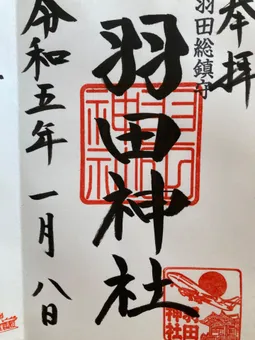 奉拝
羽田総鎮守
羽田神社
令和五年一月八日
羽田神社